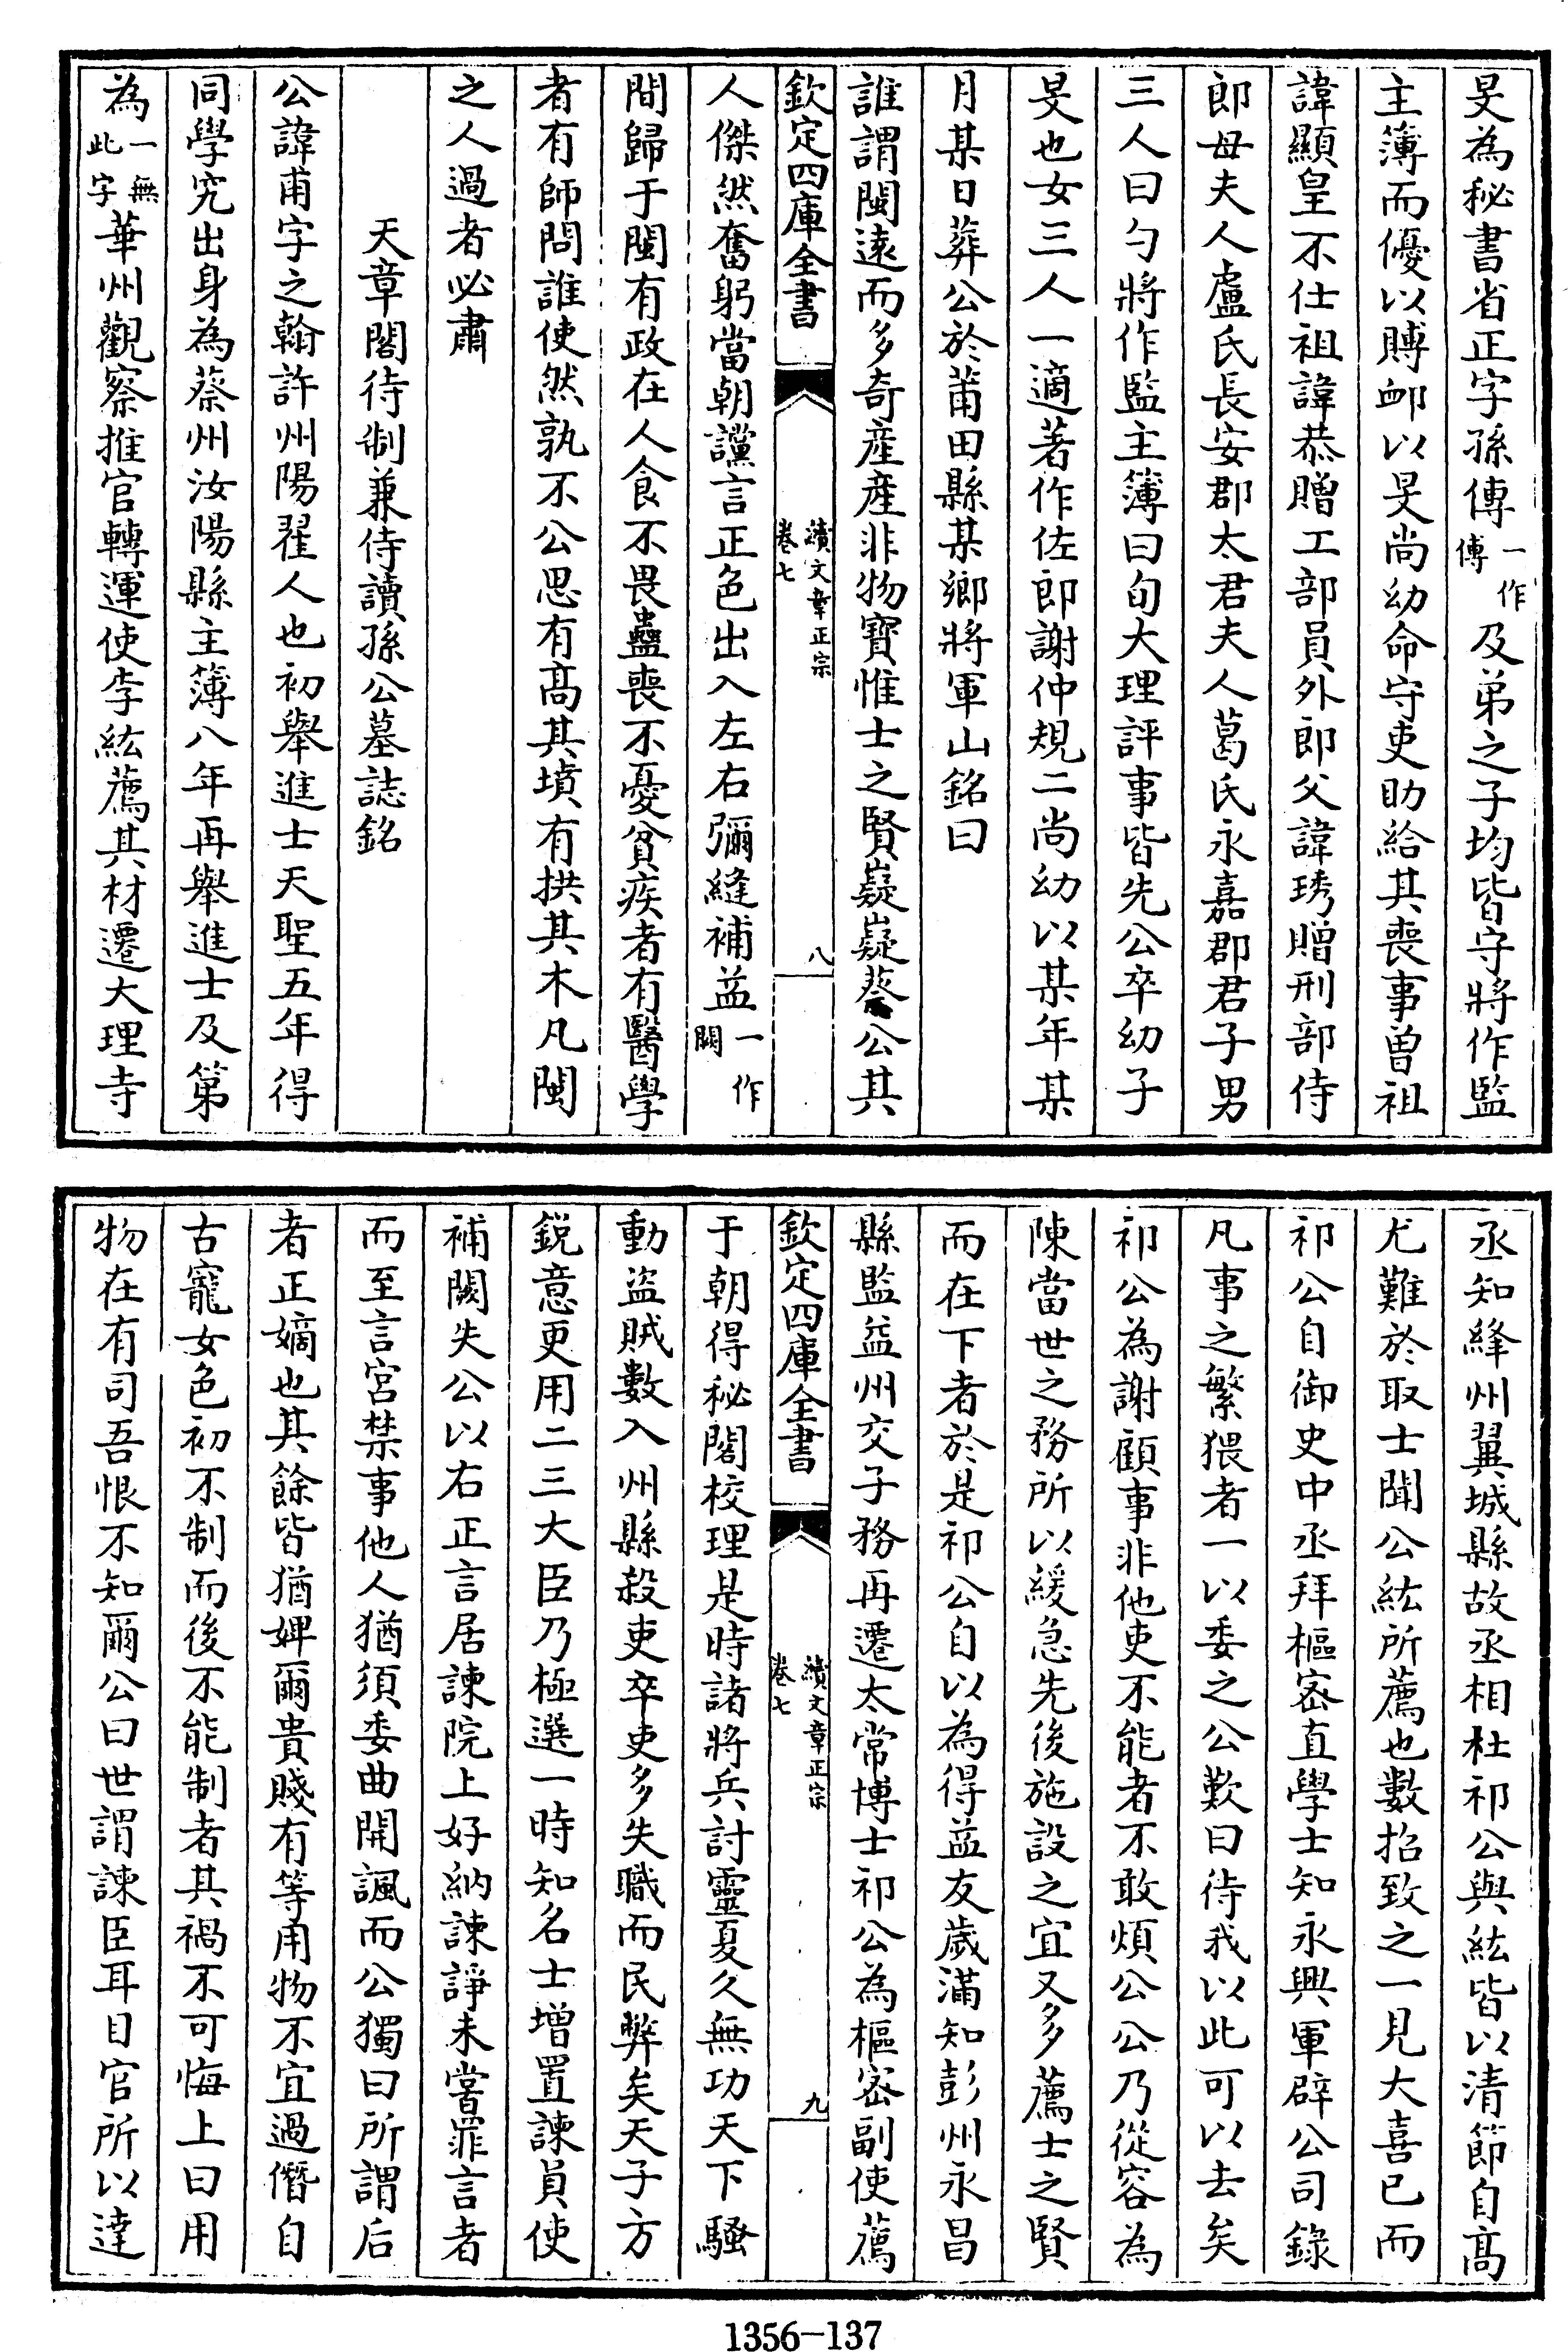 旻為秘書省正字孫傳一作傅及弟之子均皆守將作監
主簿而優以賻䘏以旻尚幼命守吏助給其喪事曾祖
諱顯皇不仕祖諱恭贈工部員外郎父諱琇贈刑部侍
郎母夫人盧氏長安郡太君夫人葛氏永嘉郡君子男
三人曰勻將作監主簿曰旬大理評事皆先公卒幼子
旻也女三人一適著作佐郎謝仲規二尚幼以某年某
月某日葬公於莆田縣某鄉將軍山銘曰
誰謂閩遠而多奇産産非物寳惟士之賢嶷嶷蔡公其
欽定四庫全書
續文章正宗
卷七
八
人傑然奮躬當朝讜言正色出入左右彌縫補益一作闕
間歸于閩有政在人食不畏蠱喪不憂貧疾者有醫學
者有師問誰使然孰不公思有髙其墳有拱其木凡閩
之人過者必肅
天章閣待制兼侍讀孫公墓誌銘
公諱甫字之翰許州陽翟人也初舉進士天聖五年得
同學究出身為蔡州汝陽縣主簿八年再舉進士及第
為一無此字華州觀察推官轉運使李紘薦其材遷大理寺
丞知絳州翼城縣故丞相杜祁公與紘皆以清節自髙
尤難於取士聞公紘所薦也數招致之一見大喜已而
祁公自御史中丞拜樞密直學士知永興軍辟公司錄
凡事之繁猥者一以委之公歎曰待我以此可以去矣
祁公為謝顧事非他吏不能者不敢煩公公乃從容為
陳當世之務所以緩急先後施設之宜又多薦士之賢
而在下者於是祁公自以為得益友歲滿知彭州永昌
縣監益州交子務再遷太常博士祁公為樞密副使薦
欽定四庫全書
續文章正宗
卷七
九
于朝得秘閣校理是時諸將兵討靈夏久無功天下騷
動盜賊數入州縣殺吏卒吏多失職而民弊矣天子方
鋭意更用二三大臣乃極選一時知名士增置諫員使
補闕失公以右正言居諫院上好納諫諍未嘗罪言者
而至言宮禁事他人猶須委曲開諷而公獨曰所謂后
者正嫡也其餘皆猶婢爾貴賤有等用物不宜過僭自
古寵女色初不制而後不能制者其禍不可悔上曰用
物在有司吾恨不知爾公曰世謂諫臣耳目官所以達
1356-137